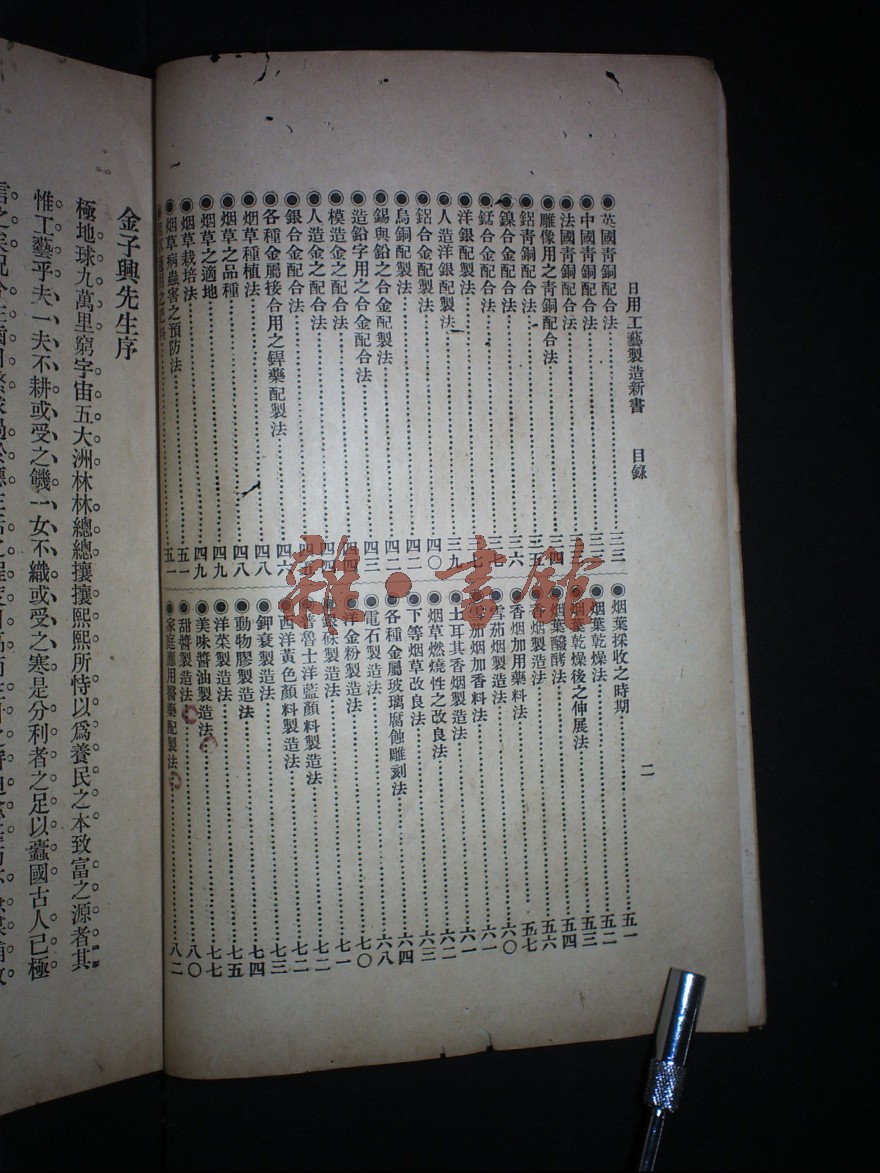 日用工藝製造新書 目錄 二
◉英國靑銅配合法…三三
◉中國靑銅配合法…三三
◉法國靑銅配合法…三三
◉雕像用之靑銅配合法…三四
◉鋁靑銅配合法…三五
◉鎳合金配合法…三六
◉錳合金配合法…三七
◉洋銀配製法…三七
◉人造洋銀配製法…三九
◉鋁合金配製法…四〇
◉烏銅配製法…四二
◉錫與鉛之合金配製法…四二
◉造鉛字用之合金配合法…四三
◉模造金之配合法…四四
◉人造金之配合法…四四
◉銀合金配合法…四五
◉各種金屬接合用之銲藥配製法…四六
◉烟草種植法…四八
◉烟草之品種…四八
◉烟草之適地…四九
◉烟草栽培法…四九
◉烟草病蟲害之預防法…五一
五一
◉烟葉採收之時期…五一
◉烟葉乾燥法…五二
◉烟葉乾燥後之伸展法…五三
◉烟葉醱酵法…五四
◉香烟製造法…五六
◉香烟加用藥料法…五七
◉雪茄烟製造法…六〇
◉雪茄烟加香料法…六一
◉土耳其香烟製造法…六一
◉烟草燃燒性之改良法…六二
◉下等烟草改良法…六三
◉各種金屬玻璃腐蝕雕刻法…六四
◉電石製造法…六八
◉洋金粉製造法…七〇
◉銀硃製造法…七一
◉普魯士洋藍顏料製造法…七二
◉西洋黃色顏料製造法…七二
◉鉀衰製造法…七三
◉動物膠製造法…七四
◉洋菜製造法…七五
◉美味醬油製造法…七七
◉甜醬製造法…八〇
◉家庭應用醫藥配製法…八二
雜·書館
金子興先生序
極地球九萬里窮宇宙五大洲林林總總攘攘熙熙所恃以爲養民之本致富之源者其
惟工藝乎夫一夫不耕或受之饑一女不織或受之寒是分利者之足以蠹國古人已極